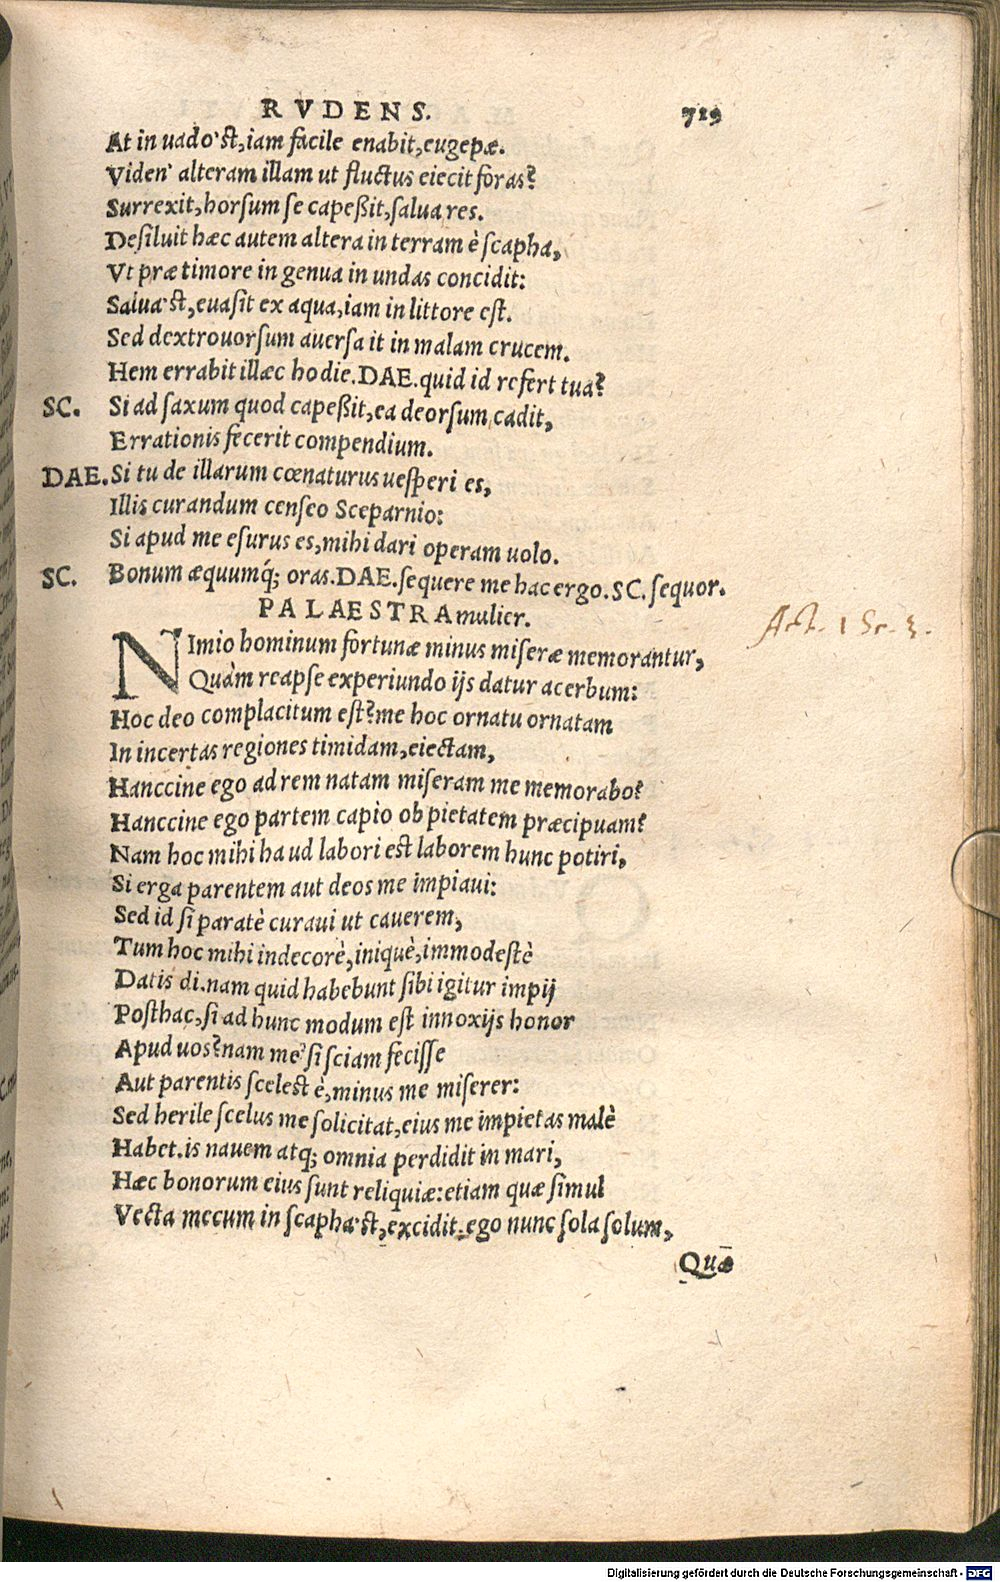 RVDENS. 719
At in uado'st, iam facile enabit, eugepæ.
Viden' alteram illam ut fluctus eiecit foras?
Surrexit, horsum se capeßit, salua res.
Desiluit hæc autem altera in terram è scapha,
Vt præ timore in genua in undas concidit:
Salua'st, euasit ex aqua, iam in littore est.
Sed dextrouorsum auersa it in malam crucem.
Hem errabit illæc hodie. DAE. quid id refert tua?
SC. Si ad saxum quod capeßit, ea deorsum cadit,
Errationis fecerit compendium.
DAE. Si tu de illarum cœnaturus uesperi es,
Illis curandum censeo Sceparnio:
Si apud me esurus es, mihi dari operam uolo.
SC. Bonum æquumq́; oras. DAE. sequere me hac ergo. SC. sequor.
PALAESTRA mulier.
Act. 1 Sc. 3.
NImio hominum fortunæ minus miseræ memorantur,
Quàm reapse experiundo ijs datur acerbum:
Hoc deo complacitum est? me hoc ornatu ornatam
In incertas regiones timidam, eiectam,
Hanccine ego ad rem natam miseram me memorabo?
Hanccine ego partem capio ob pietatem præcipuam?
Nam hoc mihi haud labori est laborem hunc potiri,
Si erga parentem aut deos me impiaui:
Sed id si paratè curaui ut cauerem,
Tum hoc mihi indecorè, iniquè, immodestè
Datis di. nam quid habebunt sibi igitur impij
Posthac, si ad hunc modum est innoxijs honor
Apud uos? nam me si sciam fecisse
Aut parentis scelestè, minus me miserer:
Sed herile scelus me solicitat, eius me impietas malè
Habet. is nauem atq; omnia perdidit in mari,
Hæc bonorum eius sunt reliquiæ: etiam quæ simul
Vecta mecum in scapha'st, excidit. ego nunc sola solum,
Quæ
Digitalisierung gefördert durch die Deutsche Forschungsgemeinschaft - DFG